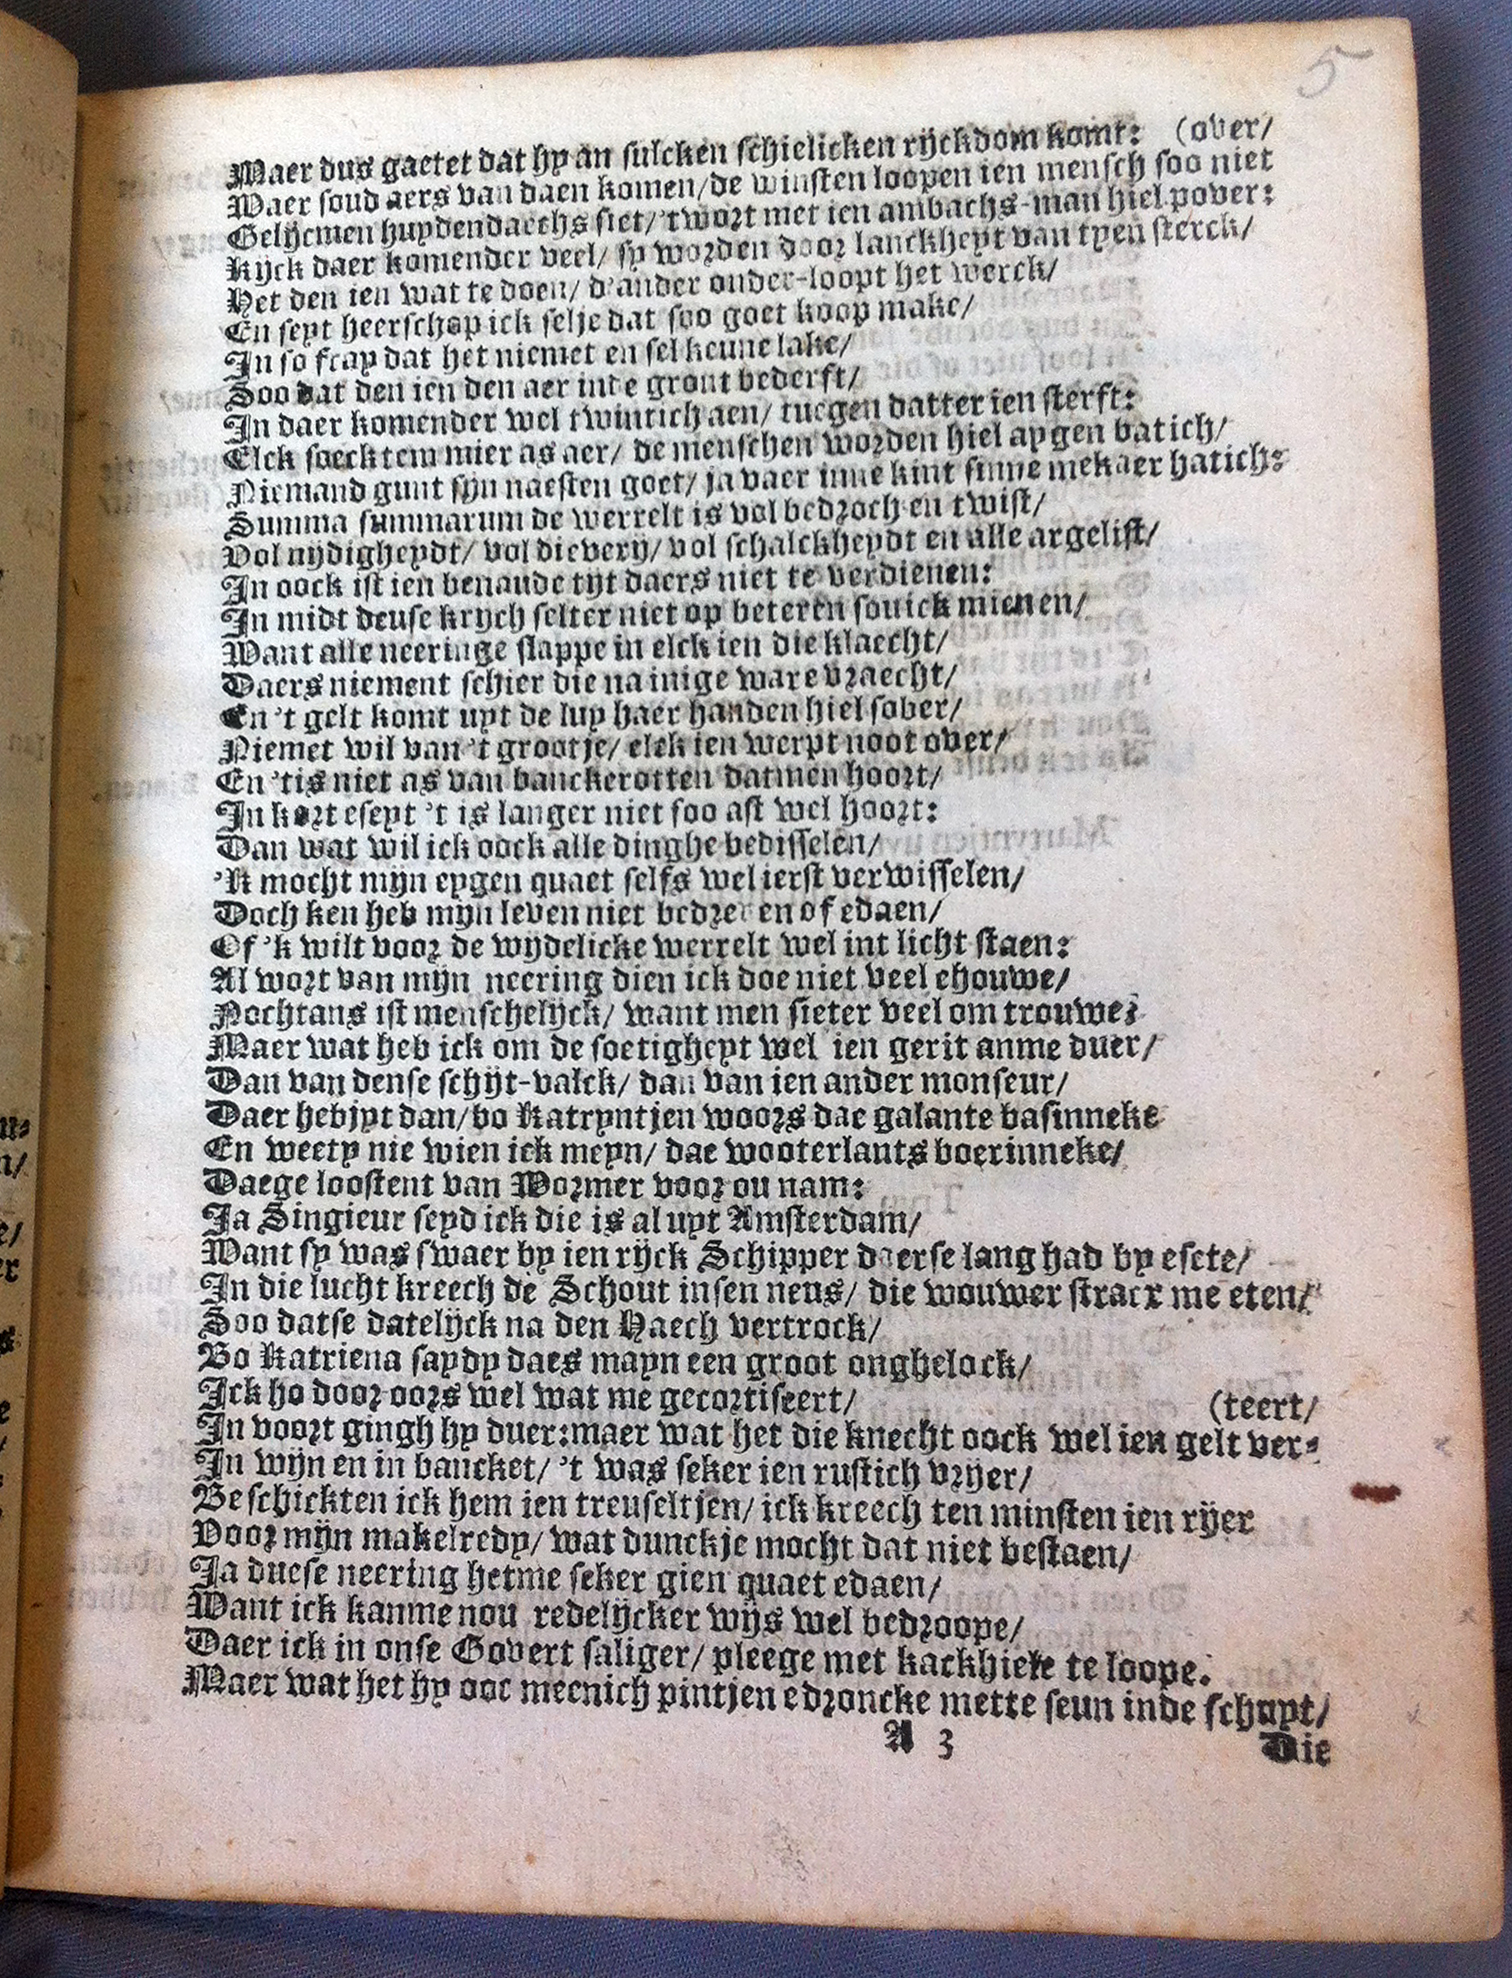 5
Maer dus gaetet dat hy an sulcken schielicken rijckdom komt: (over/
Waer soud aers van daen komen/de winsten loopen ien mensch soo niet
Gelijcmen huydendaechs siet/'twort met ien ambachs-man hiel pover:
Kijck daer komender veel/ sy worden door lanckheyt van tyen sterck/
Het den ien wat te doen/ d'ander onder-loopt het werck/
En seyt heerschop ick selje dat soo goet koop make/
In so fray dat het niemet en sel keune lake/
Soo dat den ien den aer inde gront bederft/
In daer komender wel twintich aen/ tuegen datter ien sterft:
Elck soeckt em mier as aer/ de menschen worden hiel aygen batich/
Niemand gunt sijn naesten goet/ ja vaer inne kint sinne mekaer hatich:
Summa summarum de werrelt is vol bedroch en twist/
Vol nijdigheydt/ vol dievery/ vol schalckheydt en alle argelist/
In oock ist ien benaude tijt daers niet te verdienen:
In midt deuse krijch selter niet op beteren souick mienen/
Want alle neeringe slappe in elck ien die klaecht/
Daers niement schier die na inige ware vraecht/
En 't gelt komt uyt de luy haer handen hiel sober/
Niemet wil van 't grootje/ elck ien werpt noot over/
En 'tis niet as van banckerotten datmen hoort/
In kort eseyt 't is langer niet soo ast wel hoort:
Dan wat wil ick oock alle dinghe bedisselen/
'K mocht mijn eygen quaet selfs wel ierst verwisselen/
Doch ken heb mijn leven niet bedreven of edaen/
Of 'k wilt voor de wijdelicke werrelt wel int licht staen:
Al wort van mijn neering dien ick doe niet veel ehouwe/
Nochtans ist menschelijck/ want men sieter veel om trouwe;
Maer wat heb ick om de soetigheyt wel ien gerit anme duer/
Dan van dense schijt-valck/ dan van ien ander monseur/
Daer hebjyt dan/ bo Katryntjen woors dae galante basinneke
En weety nie wien ick meyn/ dae wooterlants boerinneke/
Daege loostent van Wormer voor ou nam:
Ja Singieur seyd ick die is al uyt Amsterdam/
Want sy was swaer by ien rijck Schipper daerse lang had by esete/
In die lucht kreech de Schout in sen neus/ die wouwer stracx me eten/
Soo datse datelijck na den Haech vertrock/
Bo Katriena saydy daes mayn een groot onghelock/
Ick ho door oors wel wat me gecortiseert/ (teert/
In voort gingh hy duer: maer wat het die knecht oock wel ien gelt ver-
In wijn en in bancket/ 't was seker ien rustich vrijer/
Beschickten ick hem ien treuseltjen/ ick kreech ten minsten ien rijer
Voor mijn makelredy/ wat dunckje mocht dat niet bestaen/
Ja duese neering hetme seker gien quaet edaen/
Want ick kanme nou redelijcker wijs wel bedroope/
Daer ick in onse Govert saliger/ pleege met kackhiele te loope.
Maer wat het hy ooc mecnich pintjen edroncke mette seun inde schuyt/
A 3 Die